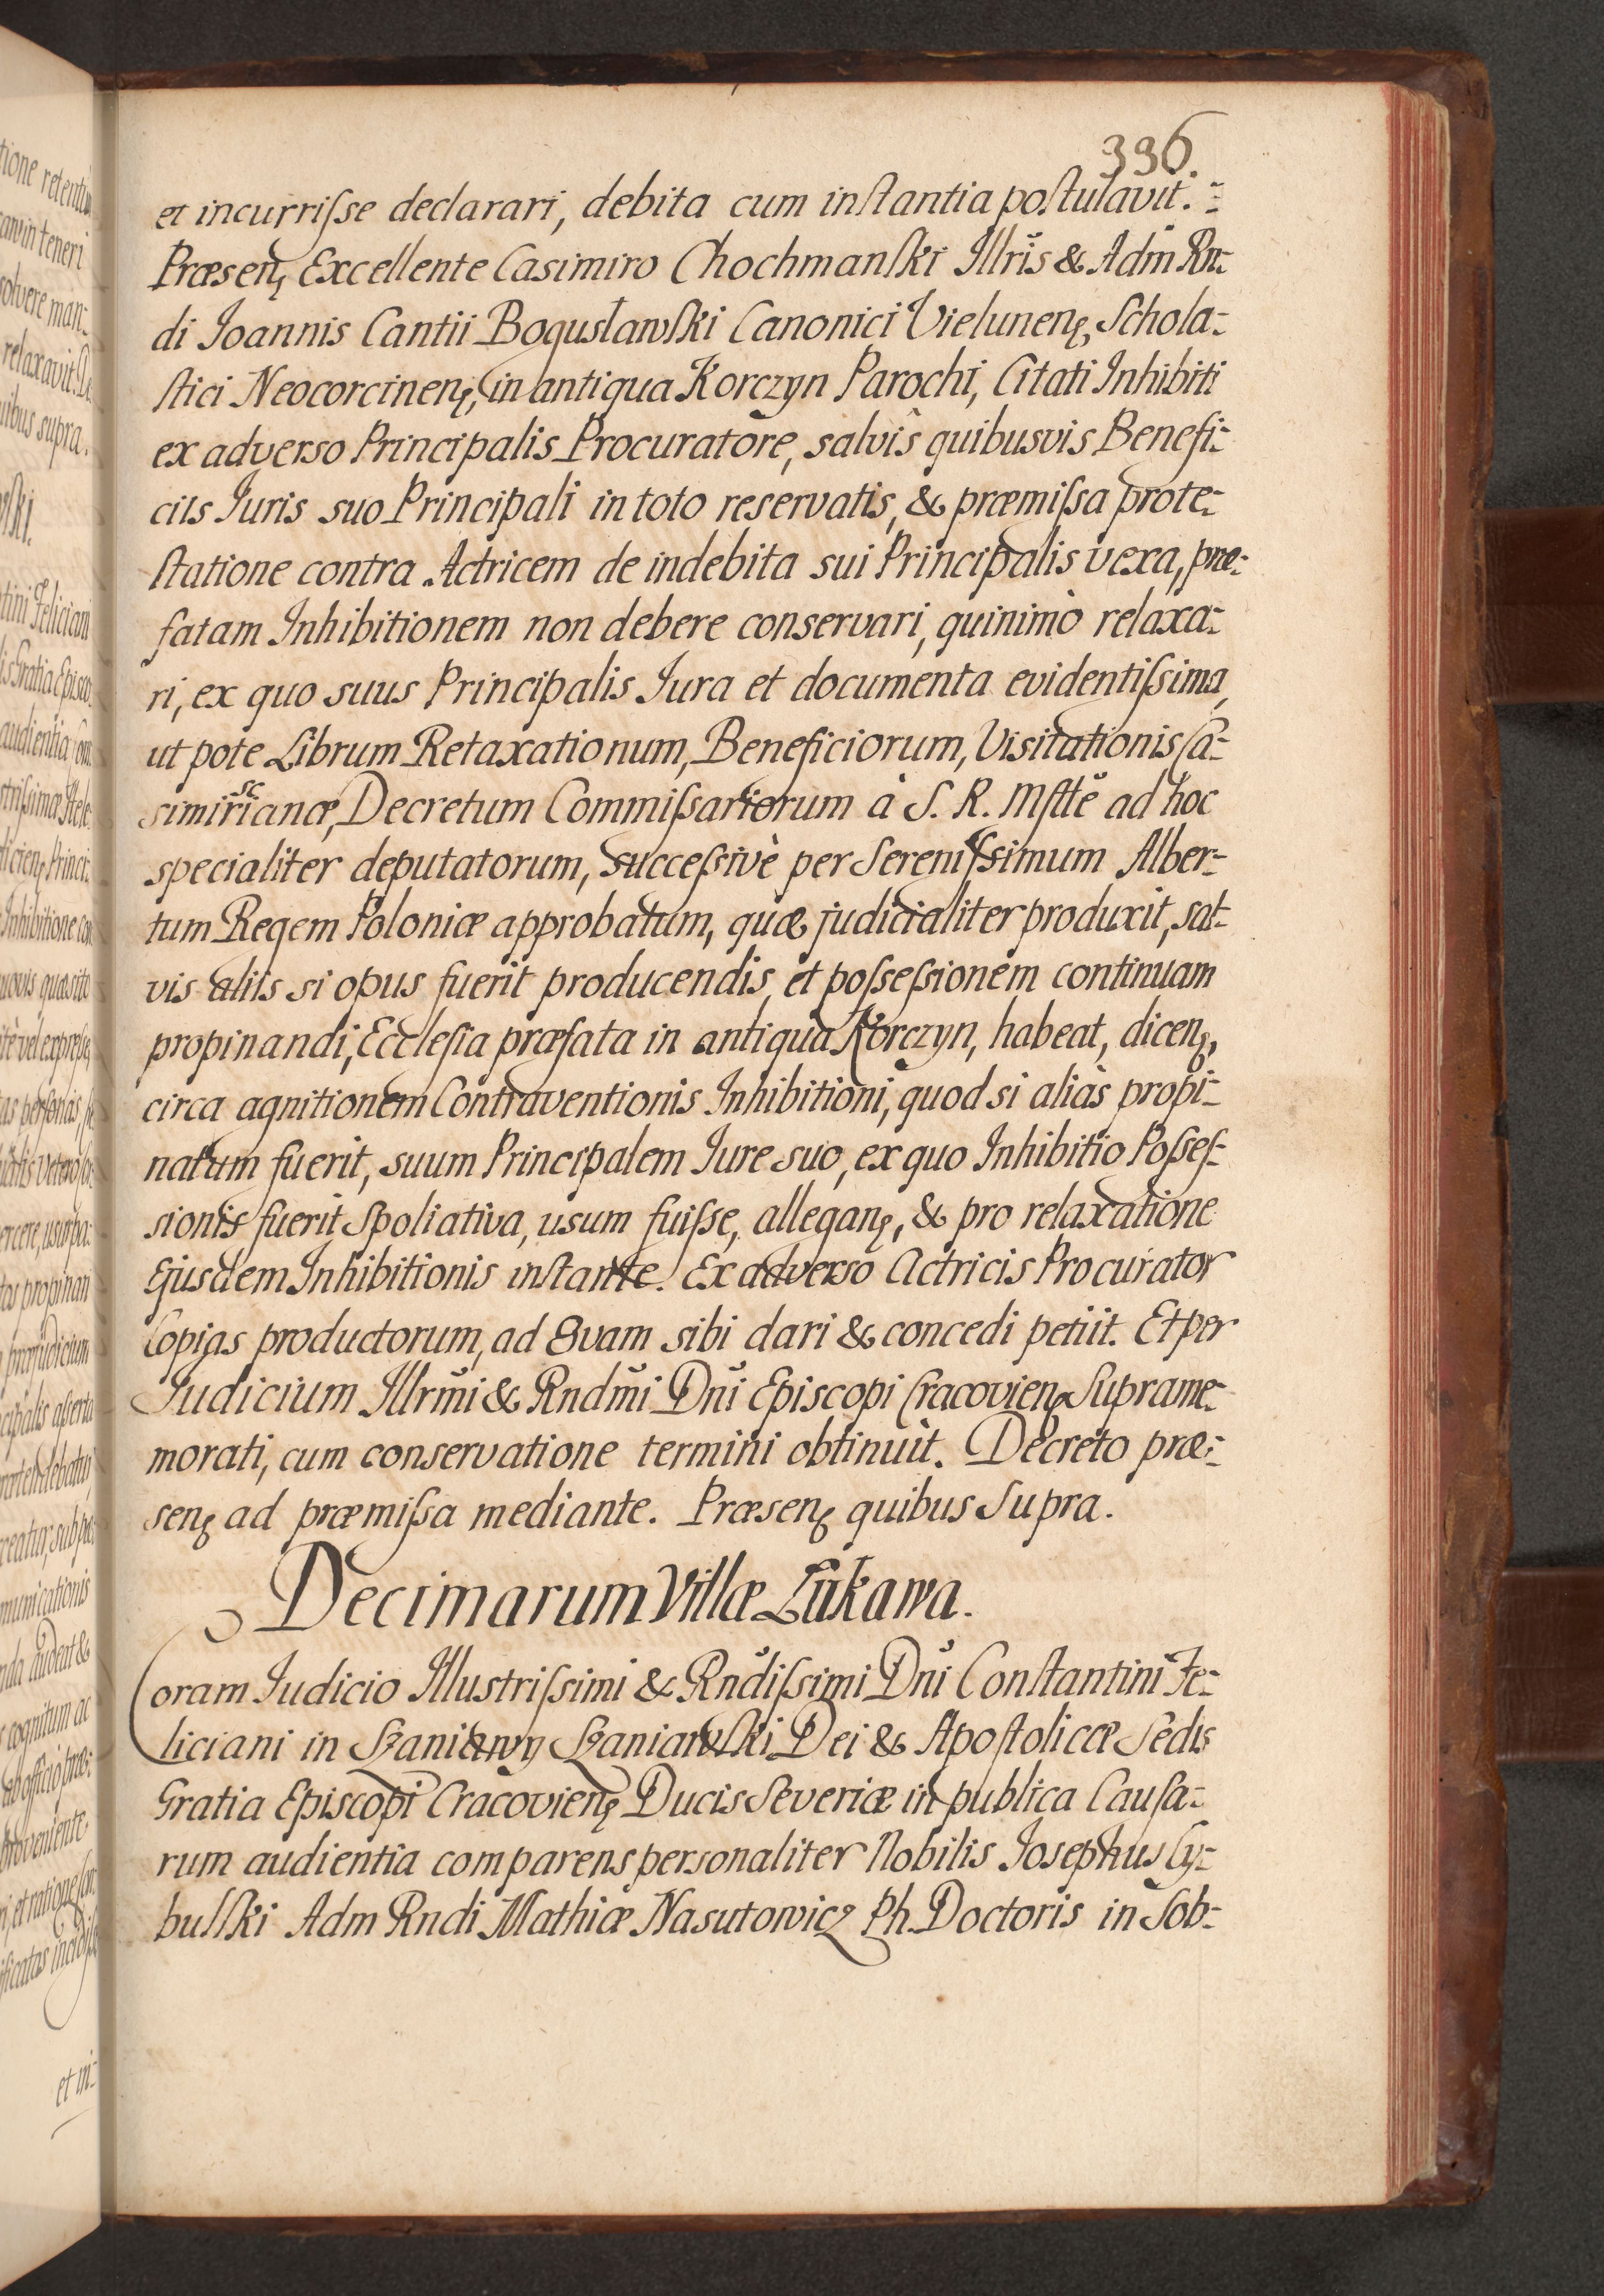 396.
et incurriſse declarari, debita cum inſtantia poſtulavit.
Præsenꝫ Excellente Casimiro Chochmanſki Illris̄ & Adm̄ Rn-
di Ioannis Cantii Bogusławſki Canonici Vielunenꝫ, Schola-
ſtici Neocorcinenꝫ, in antiqua Korczyn Parochi, Citati Inhibiti
ex adverso Principalis Procuratore, salvis quibusvis Benefi-
ciis Iuris suo Principali in toto reservatis, & præmiſsa prote-
ſtatione contra Actricem de indebita sui Principalis vexa, præ-
fatam Inhibitionem non debere conservari, quinimò relaxa-
ri, ex quo suus Principalis Iura et documenta evidentiſsima,
ut pote Librum Retaxationum, Beneficiorum, Visitationis Ca-
simiriscanæ, Decretum Commiſsariorum à S. R. Mſttē ad hoc
specialiter deputatorum, succeſsivè per Sereniſsimum Alber-
tum Regem Poloniæ approbatum, quæ judicialiter produxit, sal-
vis aliis si opus fuerit producendis, et poſseſsionem continuam
propinandi, Eccleſia præfata in antiqua Korczyn, habeat, dicenꝫ,
circa agnitionem Contraventionis Inhibitioni, quod si aliàs propi-
natum fuerit, suum Principalem Iure suo, ex quo Inhibitio Poſseſ-
sionis fuerit Spoliativa, usum fuiſse, alleganꝫ, & pro relaxatione
Ejusdem Inhibitionis inſtante. Ex adverso Actricis Procurator
Copias productorum, ad Evam sibi dari & concedi petiit. Et per
Iudicium Illrm̄i & Rndm̄i Dn̄i Episcopi Cracovienꝫ Suprame-
morati, cum conservatione termini obtinuit. Decreto præ-
senꝫ ad præmiſsa mediante. Præsenꝫ quibus Supra.
Decimarum Villæ Łukawa.
Coram Iudicio Illustriſsimi & Rnd̄iſsimi Dn̄i Conſtantini Fe-
liciani in Szaniawy Szaniawſki Dei & Apoſtolicæ Sedis
Gratia Episcopi Cracovienꝫ Ducis Severiæ in publica Cauſa-
rum audientia comparens personaliter Nobilis Iosephus Cy-
bulſki Adm Rndi Mathiæ Nasutowicz Ph. Doctoris in Sob-